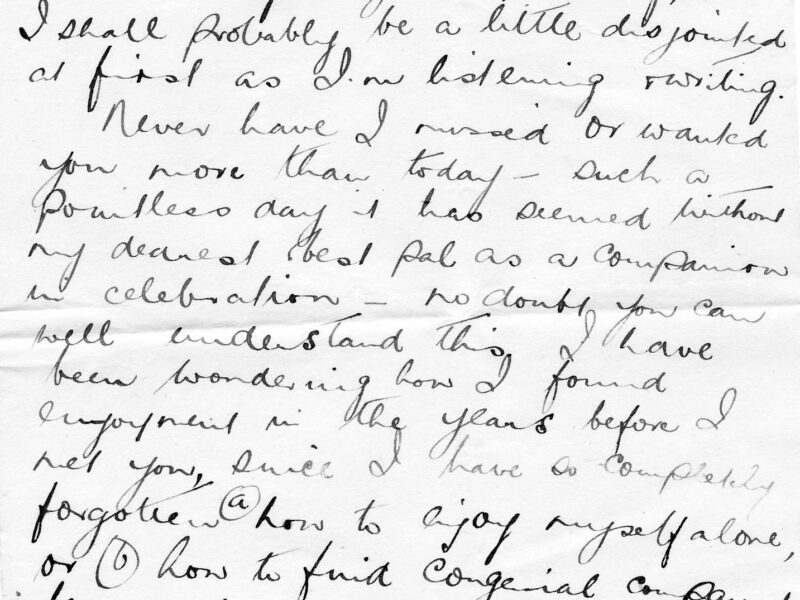 I shall probably be a little disjointed
at first as I'm listening & writing.
Never have I missed or wanted
you more than today – such a
pointless day it has seemed without
my dearest best pal as a companion
in celebration – no doubt you can
well understand this, I have
been wondering how I found
enjoyment in the years before I
met you, since I have so completely
forgotten (a) how to enjoy myself alone,
or (b) how to find congenial